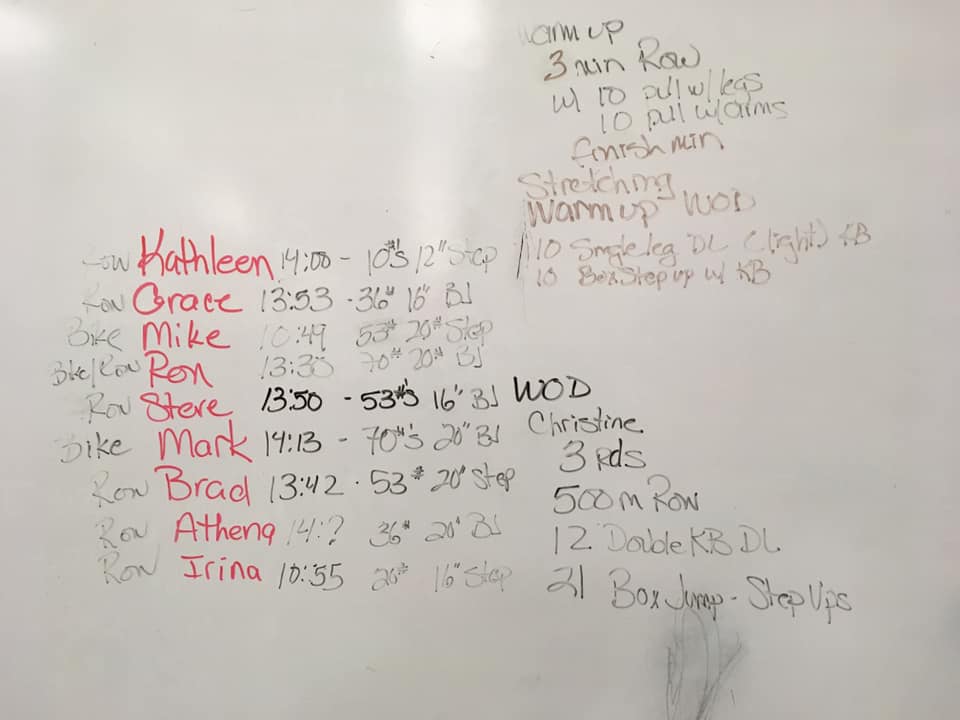 warm up
3 min Row
w/ 10 pull w/legs
10 pull w/arms
finish min
Stretching
Warm up WOD
10 Single leg DL (light) KB
10 Box Step up w/ KB
Row Kathleen 14:00 - 10#'s 12" Step
Row Grace 13:53 - 36# 16" BJ
Bike Mike 10:49 53# 20# Step
Bike/Row Ron 13:38 70# 20# BJ
Row Steve 13:50 - 53#'s 16" BJ
Bike Mark 14:13 - 70#'s 20" BJ
Row Brad 13:42 - 53# 20" Step
Row Athena 14:? 36# 20" BJ
Row Irina 10:55 26# 16" Step
WOD
Christine
3 rds
500 m Row
12 Double KB DL
21 Box Jump - Step Ups